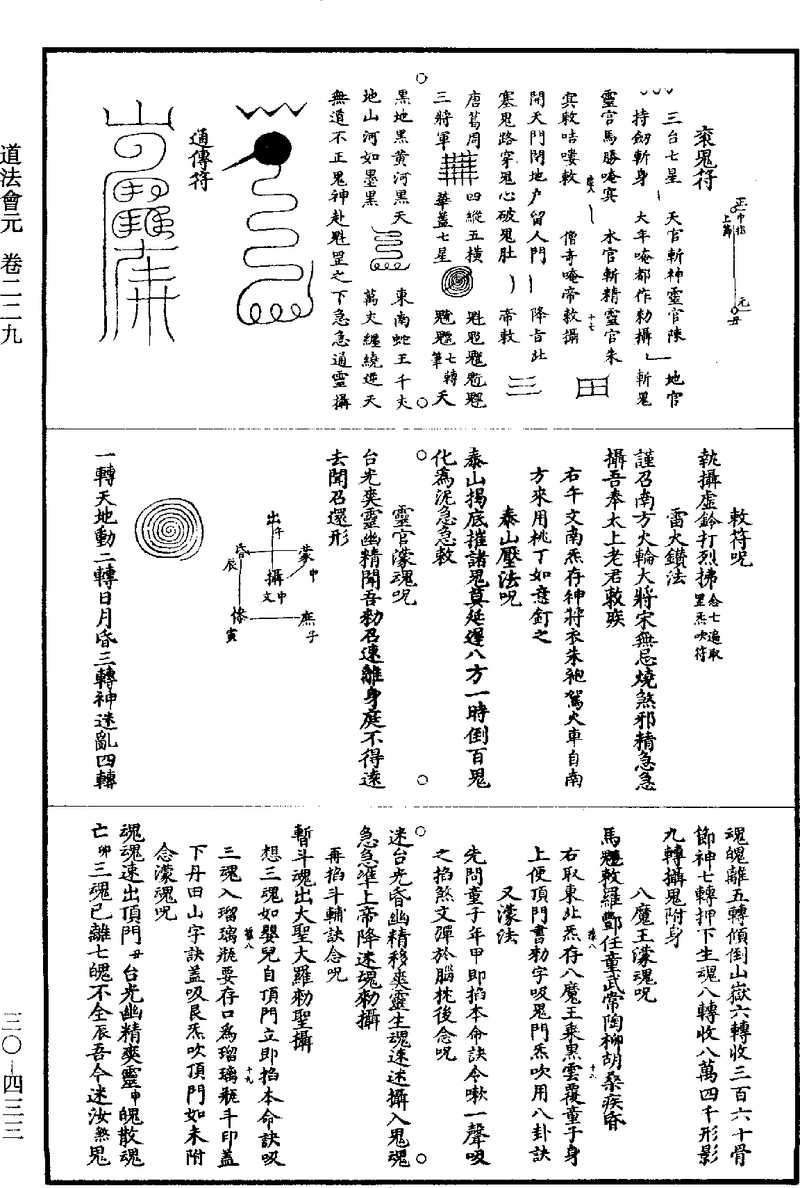 道法會元 卷二二九
三〇—四三三
袞鬼符
正一中指
上節
元
丑
三台七星 天官斬神靈官陳 地官
持劒斬身 大年唵都作勑攝 斬鬼
靈官馬勝唵㚑 水官斬精靈官朱
㚑敕咭嘍敕 僧奇唵帝敕攝
開天門閉地户留人門 降旨北
塞鬼路穿鬼心破鬼肚 帝敕
唐葛周 四縱五橫
三將軍 華蓋七星 七轉天
筆
黑地黑黄河黑天 東南蛇王千丈
地山河如墨黑 萬丈纏繞逆天
無道不正鬼神赴魁罡之下急急通靈攝
通傳符
敕符呪
執攝虛鈴打烈拂念七遍取
罡炁吹符
雷火鑽法
謹召南方火輪大將宋無忌燒煞邪精急急
攝吾奉太上老君敕疾
右午文南炁存神將衣朱袍駕火車自南
方來用桃丁如意釘之
泰山壓法呪
泰山揭底摧諸鬼莫延遲八方一時倒百鬼
化為泥急急敕
靈官濛魂呪
台光爽靈幽精聞吾勑召速離身庭不得遠
去聞召還形
出午
蒙申
攝
文中
昏
辰
慘
寅
廡
子
一轉天地動二轉日月昏三轉神迷亂四轉
魂魄離五轉傾倒山嶽六轉收三百六十骨
節神七轉押下生魂八轉收八萬四千形影
九轉攝鬼附身
八魔王濛魂呪
馬魋敕羅酆任童武常陶柳胡桑疾昏
右取東北炁存八魔王乘黑雲覆童子身
上便頂門書勑字吸鬼門炁吹用八卦訣
又濛法
先問童子年甲即掐本命訣令嗽一聲吸
之掐煞文彈於腦枕後念呪
迷台光昏幽精移爽靈生魂速迷攝入鬼魂
急急准上帝降迷魂勑攝
再掐斗輔訣念呪
暫斗魂出大聖大羅勑聖攝
想三魂如嬰兒自頂門立即掐本命訣吸
三魂入瑠璃瓶要存口為瑠璃瓶斗印蓋
下丹田山字訣蓋吸艮炁吹頂門如未附
念濛魂呪
魂魂速出頂門丑台光幽精爽靈申魄散魂
亡卯三魂已離七魄不全辰吾今迷汝煞鬼